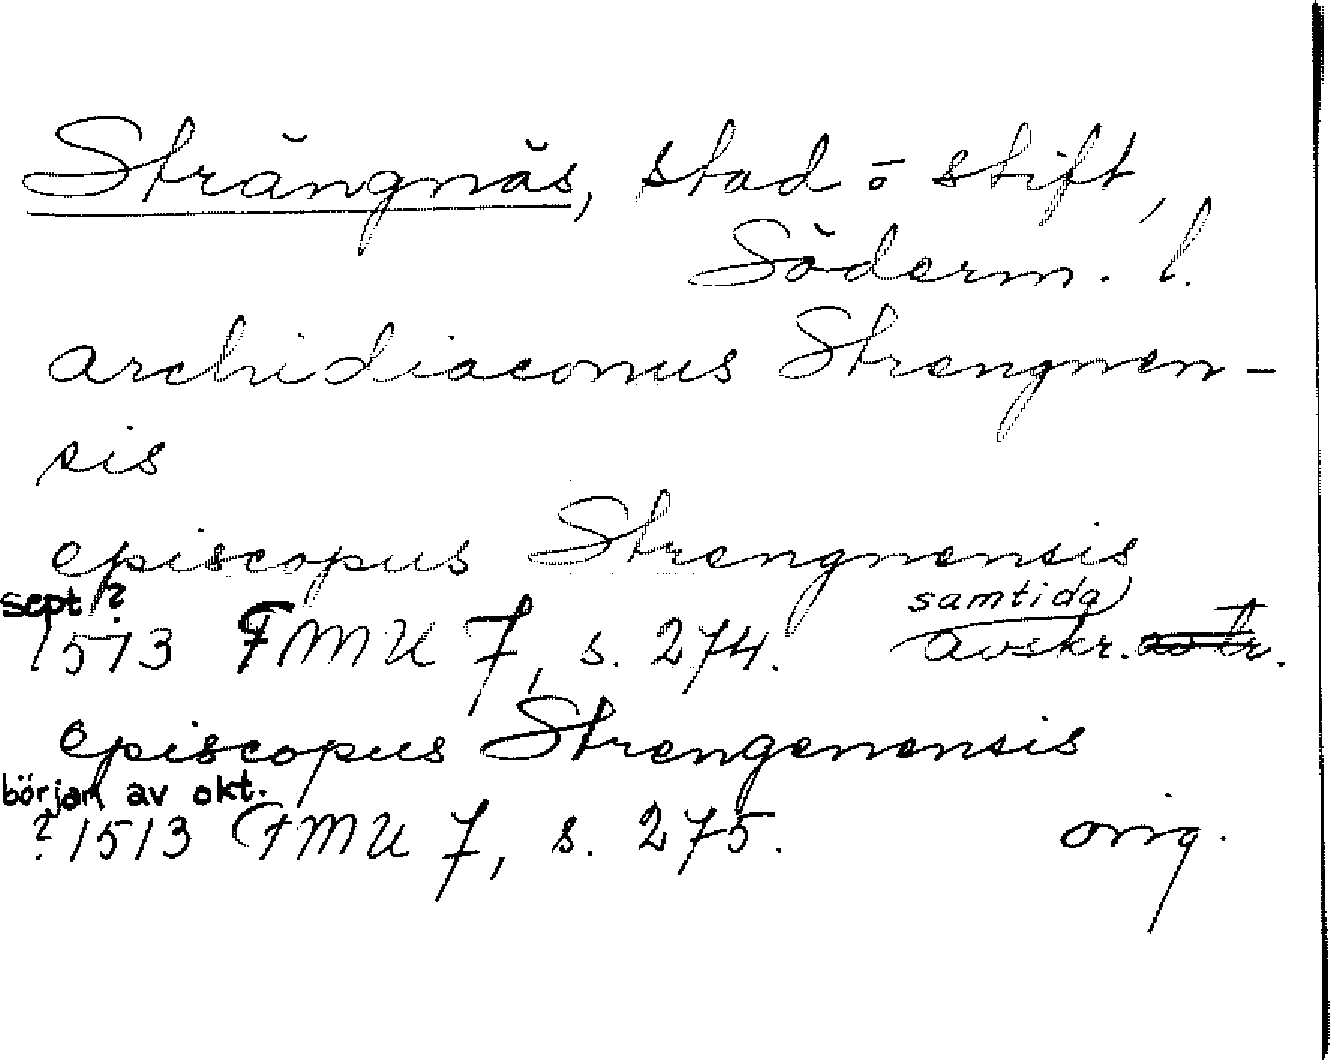 Strängnäs, stad o stift,
Söderm. l.
archidiaconus Strengnen-
sis
episcopus Strengnensis
sept ?
samtida
1513 FMU 7, s. 274. avskr.
episcopus Strengenensis
början av okt.
? 1513 FMU 7, s. 275. orig.